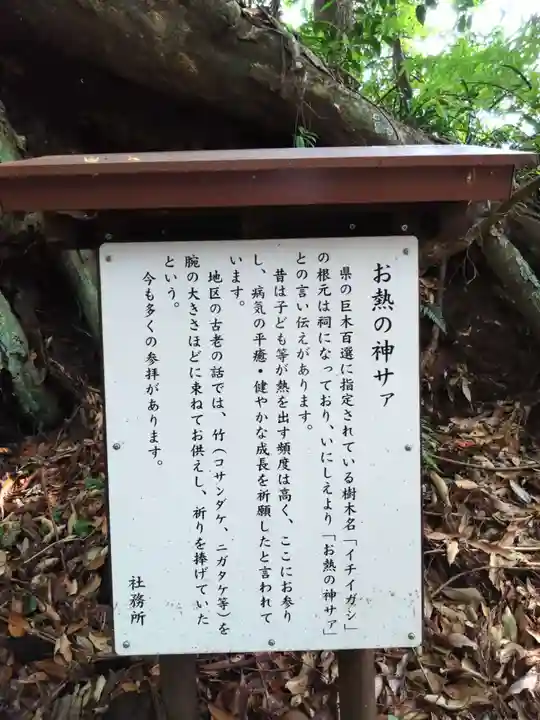 お熱の神サァ
県の巨木百選に指定されている樹木名「イチイガシ」
の根元は祠になっており、いにしえより「お熱の神サァ」
との言い伝えがあります。
昔は子ども等が熱を出す頻度は高く、ここにお参り
し、病気の平癒・健やかな成長を祈願したと言われて
います。
地区の古老の話では、竹(コサンダケ、ニガタケ等)を
腕の大きさほどに束ねてお供えし、祈りを捧げていた
という。
今も多くの参拝があります。
社務所